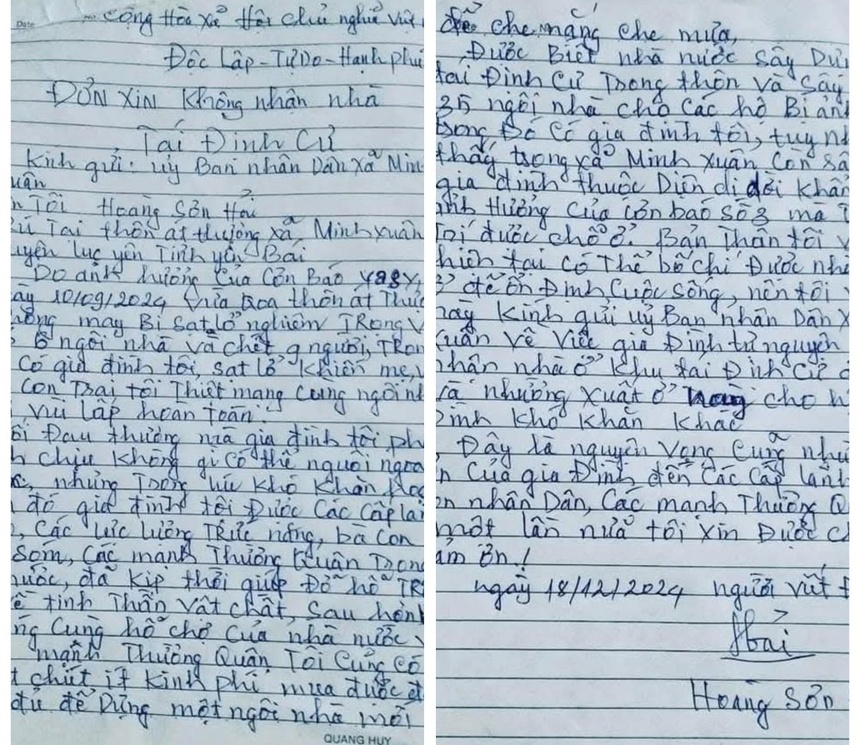 Date No.
Cộng Hòa Xã Hội chủ nghĩa Việt
Độc Lập - Tự Do - Hạnh phú
ĐƠN XIN Không nhận nhà
Tái Định Cư
Kính gửi: uỷ Ban nhân Dân xã Min
uân
n Tôi Hoàng Sơn Hải
ú Tại thôn át thượng xã Minh xuân
uyện lục yên Tỉnh yên Bái
Do ảnh hưởng Của Cơn Bão yagy,
ày 10/09/2024 vừa qoa thôn át Thượ
hông may Bị sạt lở nghiêm TRọng v
6 ngôi nhà và chết 9 người, TRon
Có gia đình tôi, sạt lở khiến mẹ, v
Con Trai tôi Thiệt mạng cùng ngôi n
vùi lấp hoàn toàn.
ỗi Đau thương mà gia đình tôi ph
h chịu không gì có thể nguôi ngoa
c, nhưng Trong lúc khó khăn hoạ
đó gia đình tôi Được Các Cấp lãn
, Các lực lượng TRức năng, bà con
Sóm, Các mạnh Thường Quân Trong
nước, đã kịp thời giúp Đỡ hỗ TR
ề tinh Thần vật chất, Sau hơn
ng Cùng hỗ chợ Của nhà nước v
mạnh Thường Quân Tôi Cũng Có
t chút ít Kinh phí mua được đ
đủ để Dựng một ngôi nhà mới
QUANG HUY
để che nắng che mưa,
Được Biết nhà nước Sây Dựn
tái Định Cư Trong thôn và Sây
35 ngôi nhà cho các hộ Bị ản
rong Đó có gia đình tôi, tuy n
thấy trong xã Minh Xuân Còn sâ
gia đình thuộc Diện di dời khẩn
ảnh Hưởng Của Cơn bão số 3 mà
Tới được chỗ ở. Bản Thân tôi v
hiện tại Có Thể bố chí Được nh
ở để ổn Định Cuộc sống, nên tôi
này Kính gửi uỷ Ban nhân Dân X
Xuân về Việc gia Đình tự nguyện
nhận nhà ở khu tái Định Cư
và nhường xuất ở cho h
Đình khó khăn khác
Đây là nguyện vọng Cũng như
n Của gia Đình đến Các Cấp lãn
n nhân Dân, Các mạnh Thường Q
một lần nữa tôi xin Được c
ảm ơn!
ngày 18/12/2024 người viết
Hải
Hoàng Sơn